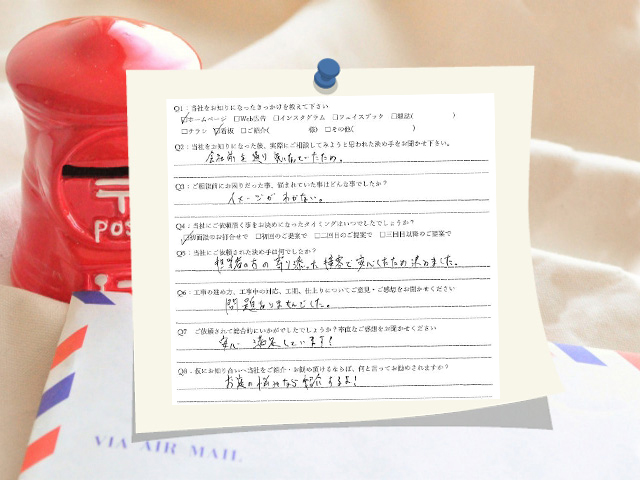 Q1：当社をお知りになったきっかけを教えて下さい
☑ホームページ □Web広告 □インスタグラム □フェイスブック □雑誌（ ）
□チラシ ☑看板 □ご紹介（ 様）□その他（ ）
Q2：当社をお知りになった後、実際にご相談してみようと思われた決め手をお聞かせ下さい。
会社前を通り気になっていたため。
Q3：ご依頼前にお困りだった事、悩まれていた事はどんな事でしたか？
イメージがわかない。
Q4：当社にご依頼頂く事をお決めになったタイミングはいつでしたでしょうか？
☑初面談のお打合せで □初回のご提案で □二回目のご提案で □三回目以降のご提案で
Q5：当社にご依頼された決め手は何でしたか？
担当者の方の寄り添った接客で安心したため決めました。
Q6：工事の進め方、工事中の対応、工期、仕上りについてご意見・ご感想をお聞かせください
問題ありませんでした。
Q7 ご依頼されて総合的にいかがでしたでしょうか？率直なご感想をお聞かせください
安心 満足しています！
Q8：仮にお知り合いへ当社をご紹介・お勧め頂けるならば、何と言ってお勧めされますか？
お庭の悩みなら紹介するよ！
POS
VIA AIR MAIL